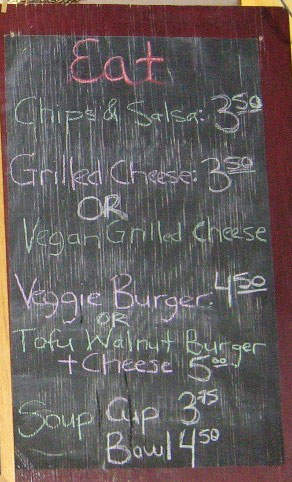 Eat
Chips & Salsa: 3.50
Grilled Cheese: 3.50
OR
Vegan Grilled Cheese
Veggie Burger: 4.50
OR
Tofu Walnut Burger
+ Cheese 5.00
Soup Cup 3.75
Bowl 4.50